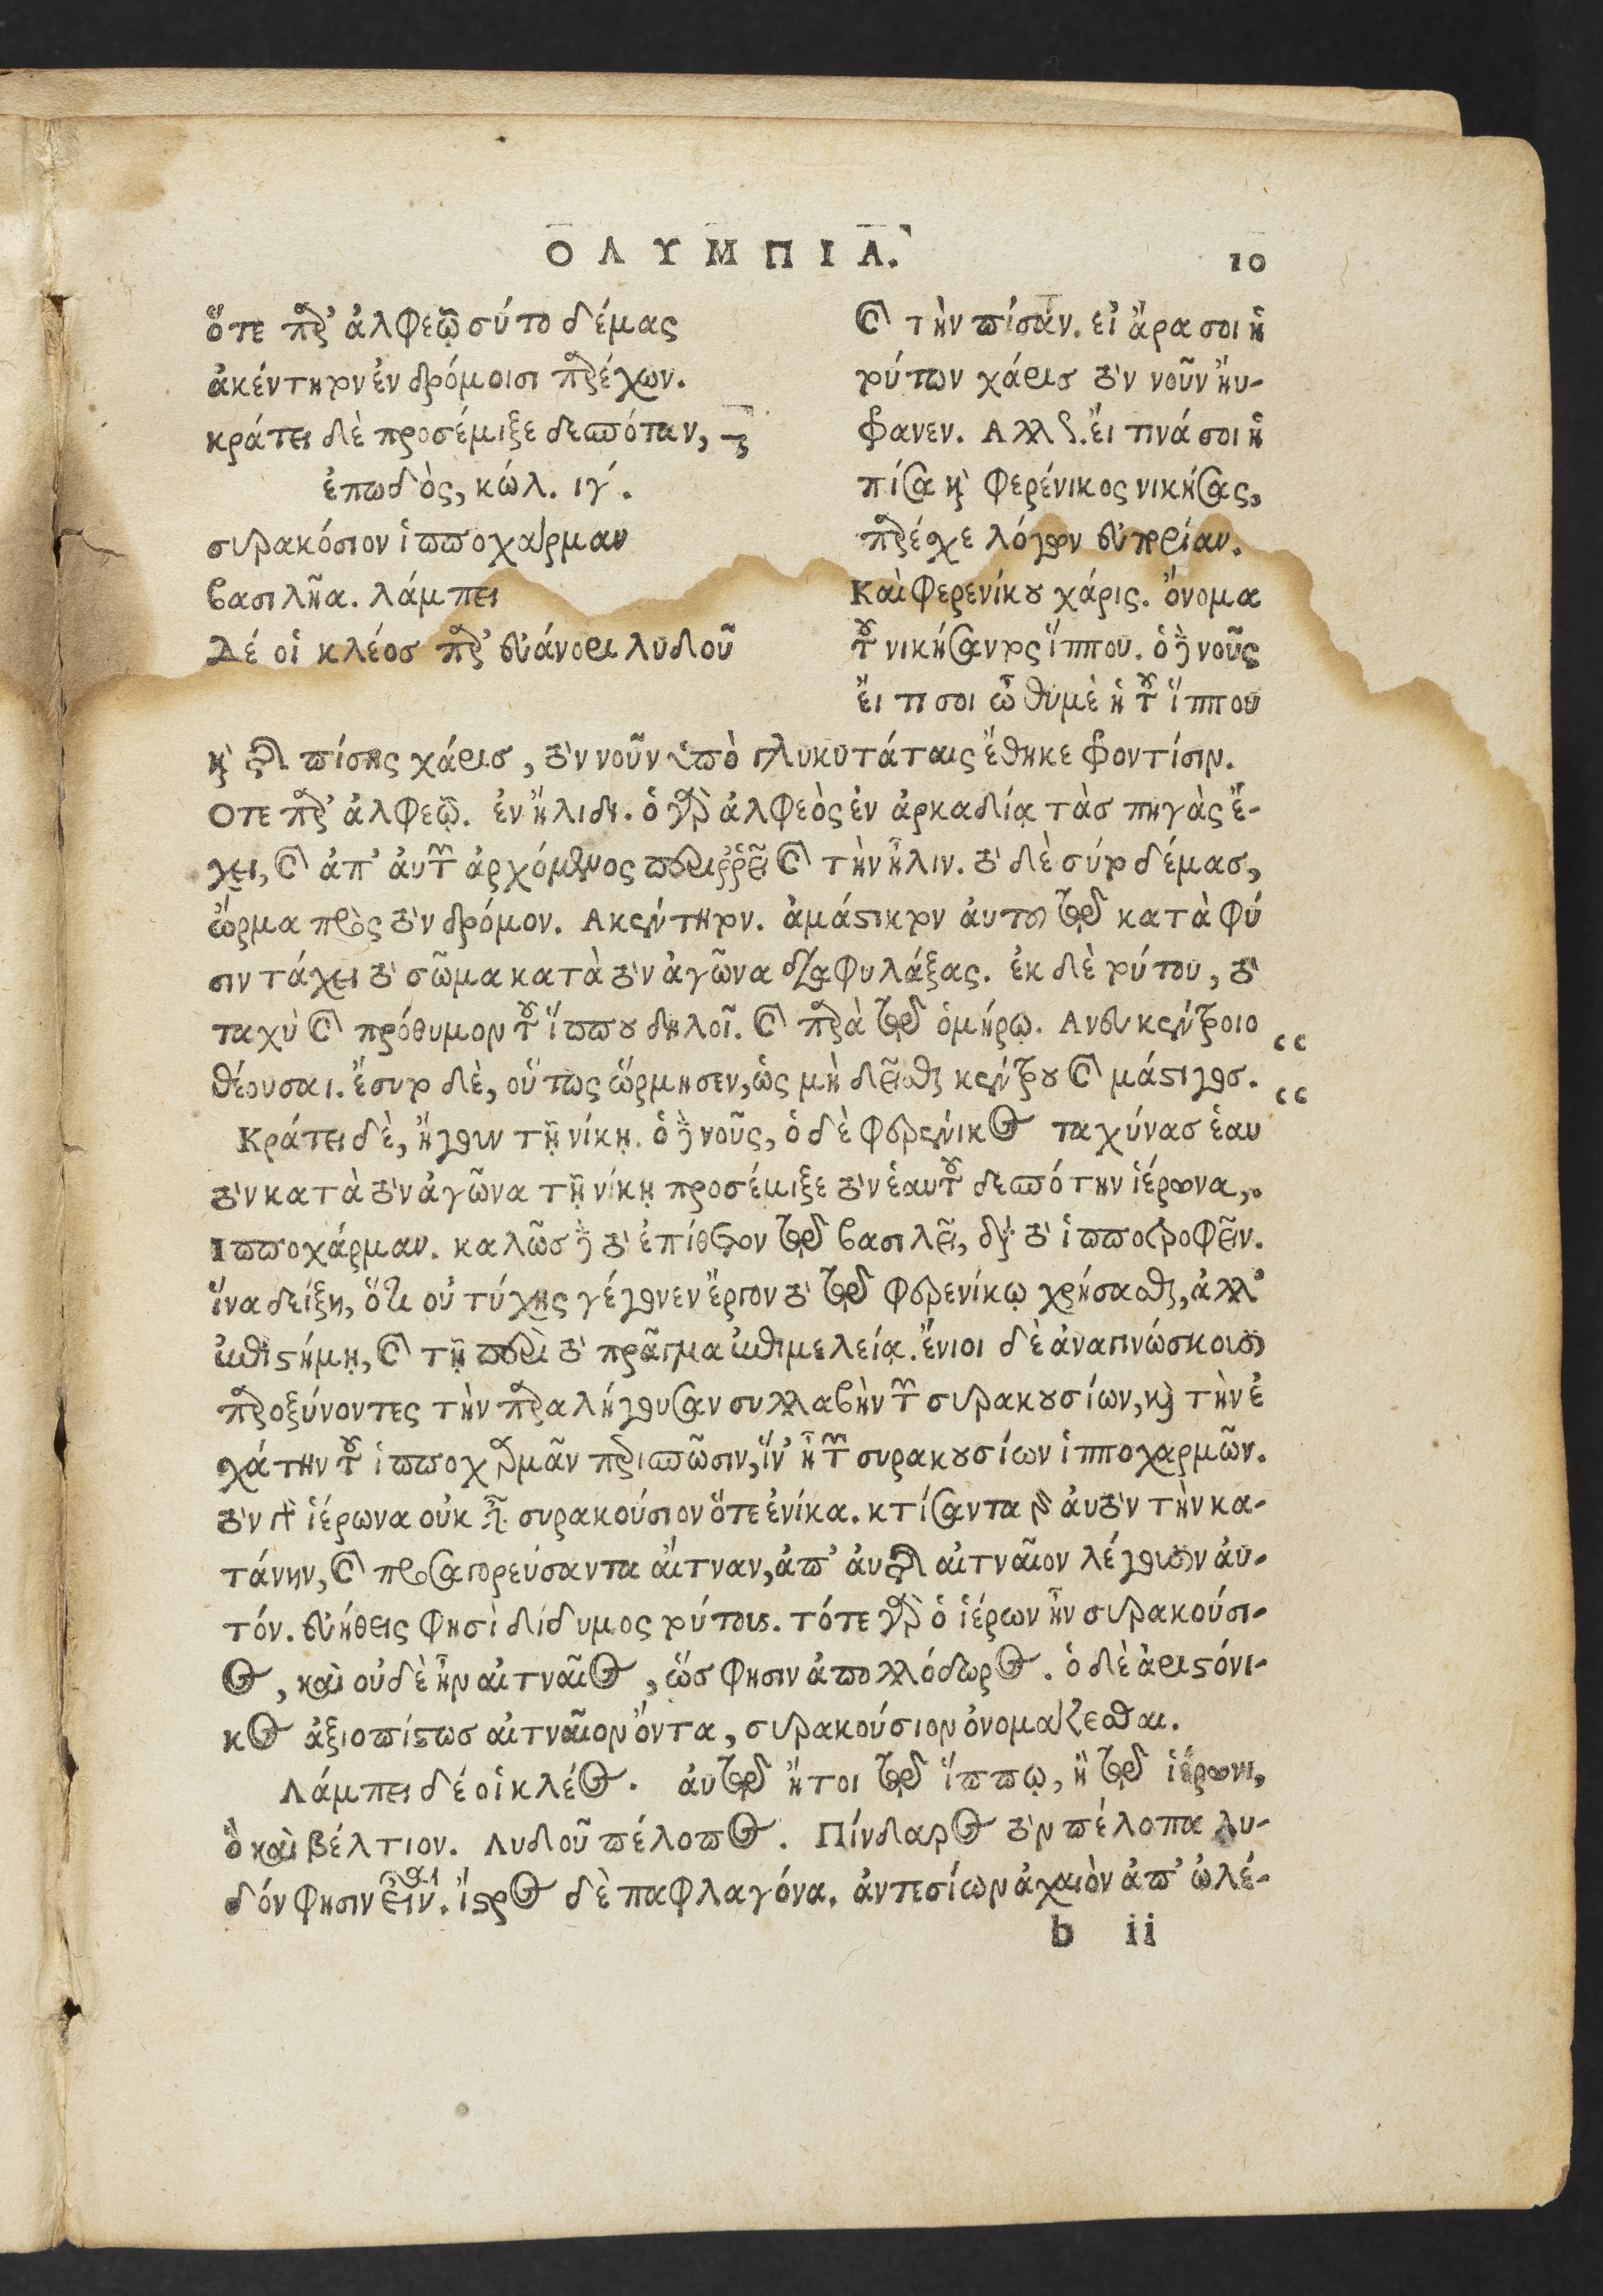 ΟΛΥΜΠΙΑ. 10
ὅτε παρ' ἀλφεῷ σύτο δέμας
ἀκέντητον ἐν δρόμοισι παρέχων.
κράτει δὲ προσέμιξε δεσπόταν,
ἐπωδὸς, κώλ. ιγ΄.
συρακόσιον ἱπποχάρμαν
βασιλῆα. λάμπει
Δέ οἱ κλέος παρ' εὐάνορι λυδοῦ
καὶ τὴν πίσαν. εἰ ἄρα σοι ἡ
τούτων χάρις τὸν νοῦν ηὔ-
φρανεν. Αλλως. εἴ τινά σοι ἡ
πίσα καὶ φερένικος νικήσας,
παρέχε λόγων εὐπορίαν.
Καὶ Φερενίκου χάρις. ὄνομα
τοῦ νικήσαντος ἵππου. ὁ δὲ νοῦς
εἴ τι σοι ὦ θυμὲ ἡ τοῦ ἵππου
καὶ τῆς πίσης χάρις, τὸν νοῦν ὑπὸ γλυκυτάταις ἔθηκε φροντίσιν.
Οτε παρ' ἀλφεῷ. ἐν ἤλιδι. ὁ γὰρ ἀλφεὸς ἐν ἀρκαδίᾳ τὰς πηγὰς ἔ-
χει, καὶ ἀπ' αὐτῶν ἀρχόμενος περιῤῥεῖ καὶ τὴν ἦλιν. τὸ δὲ σύτο δέμας,
ὥρμα πρὸς τὸν δρόμον. Ακέντητον. ἀμάστικτον αὐτὸ τῷ κατὰ φύ
σιν τάχει τὸ σῶμα κατὰ τὸν ἀγῶνα διαφυλάξας. ἐκ δὲ τούτου, τὸ
ταχὺ καὶ πρόθυμον τοῦ ἵππου δηλοῖ. καὶ παρὰ τῷ ὁμήρῳ. Ανευ κέντροιο
θέουσαι. ἔσυτο δὲ, οὕτως ὥρμησεν, ὡς μὴ δεῖσθαι κέντρου καὶ μάστιγος.
Κράτει δὲ, ἤγουν τῇ νίκῃ. ὁ δὲ νοῦς, ὁ δὲ φερένικος ταχύνας ἑαυ
τὸν κατὰ τὸν ἀγῶνα τῇ νίκῃ προσέμιξε τὸν ἑαυτοῦ δεσπότην ἱέρωνα,
Ιπποχάρμαν. καλῶς δὲ τὸ ἐπίθετον τῷ βασιλεῖ, διὰ τὸ ἱπποτροφεῖν.
ἵνα δείξῃ, ὅτι οὐ τύχης γέγονεν ἔργον τὸ τῷ φερενίκῳ χρήσασθαι, ἀλλ'
ἐπιστήμῃ, καὶ τῇ περὶ τὸ πρᾶγμα ἐπιμελείᾳ. ἔνιοι δὲ ἀναγινώσκουσι
παροξύνοντες τὴν παραλήγουσαν συλλαβὴν τῶν συρακουσίων, καὶ τὴν ἐ
χάτην τοῦ ἱπποχαρμᾶν περισπῶσιν, ἵν' ᾖ τῶν συρακουσίων ἱπποχαρμῶν.
τὸν γὰρ ἱέρωνα οὐκ εἶναι συρακούσιον ὅτε ἐνίκα. κτίσαντα γὰρ αὐτὸν τὴν κα-
τάνην, καὶ προσαγορεύσαντα αἴτναν, ἀπ' αὐτῆς αἰτναῖον λέγουσιν αὐ-
τόν. εὐήθεις φησὶ δίδυμος τούτους. τότε γὰρ ὁ ἱέρων ἦν συρακούσι-
ος, καὶ οὐδὲ ἦν αἰτναῖος, ὥς φησιν ἀπολλόδωρος. ὁ δὲ ἀριστόνι-
κος ἀξιοπίστως αἰτναῖον ὄντα, συρακούσιον ὀνομάζεσθαι.
Λάμπει δέ οἱ κλέος. αὐτῷ ἤτοι τῷ ἵππῳ, ἢ τῷ ἱέρωνι,
ὃ καὶ βέλτιον. Λυδοῦ πέλοπος. Πίνδαρος τὸν πέλοπα λυ-
δόν φησιν εἶναι. ἴστρος δὲ παφλαγόνα. ἀντεσίων ἀχαιὸν ἀπ' ὠλέ-
b ii